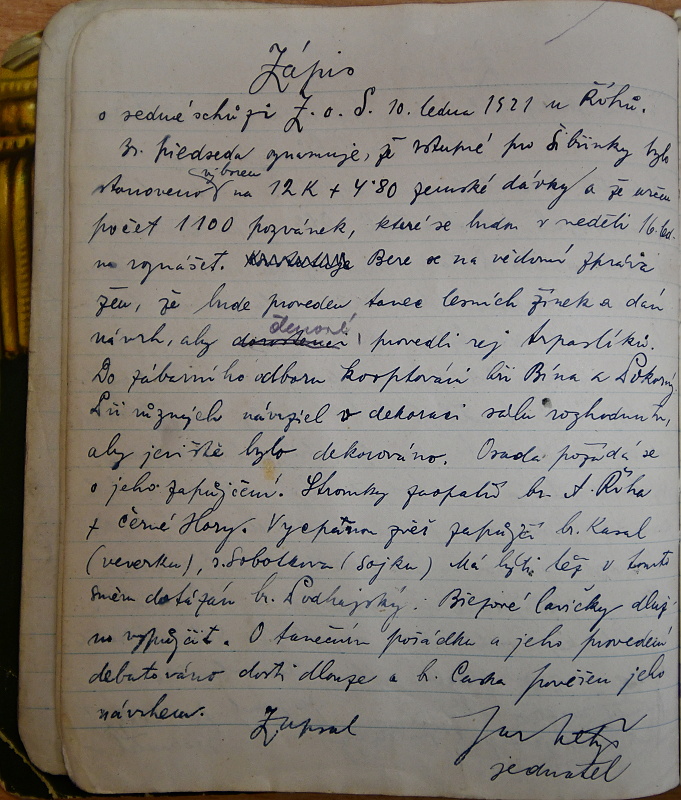 Zápis
o sedmé schůzi Z. o. S. 10. ledna 1921 u Říhů.
Br. předseda oznamuje, že vstupné pro Šibřinky bylo
výborem
stanoveno na 12 K + 4·80 zemské dávky a že určen
počet 1100 pozvánek, které se budou v neděli 16. led.
na roznášet. Bere se na vědomí zpráva
žen, že bude proveden tanec lesních žínek a dán
členové
návrh, aby dorostenci, provedli rej trpaslíků.
Do zábavního odboru kooptováni bři Bína a Pokorný
Při různých návrzích o dekoraci sálu rozhodnuto,
aby jeviště bylo dekorováno. Osada požádá se
o jeho zapůjčení. Stromky zaopatří br. A. Říha
z Černé Hory. Vycpanou zvěř zapůjčí br. Kasal
(veverku), s. Sobotkova (sojku) Má býti též v tomto
směru dotázán br. Podhajský. Březové lavičky dluž-
no vypůjčit. O tanečním pořádku a jeho provedení
debatováno dosti dlouze a br. pověřen jeho
návrhem.
Zapsal
jednatel